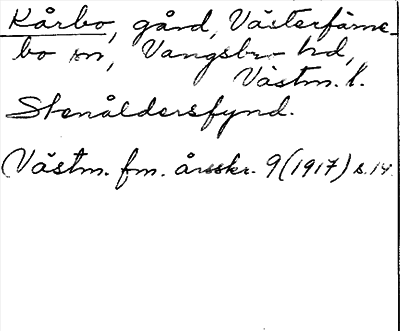 Kårbo, gård, Västerfärne-
bo sn, Vangsbro hd,
Västm. l.
Stenåldersfynd.
(Västm. fm. årsskr. 9 (1917) s. 14.